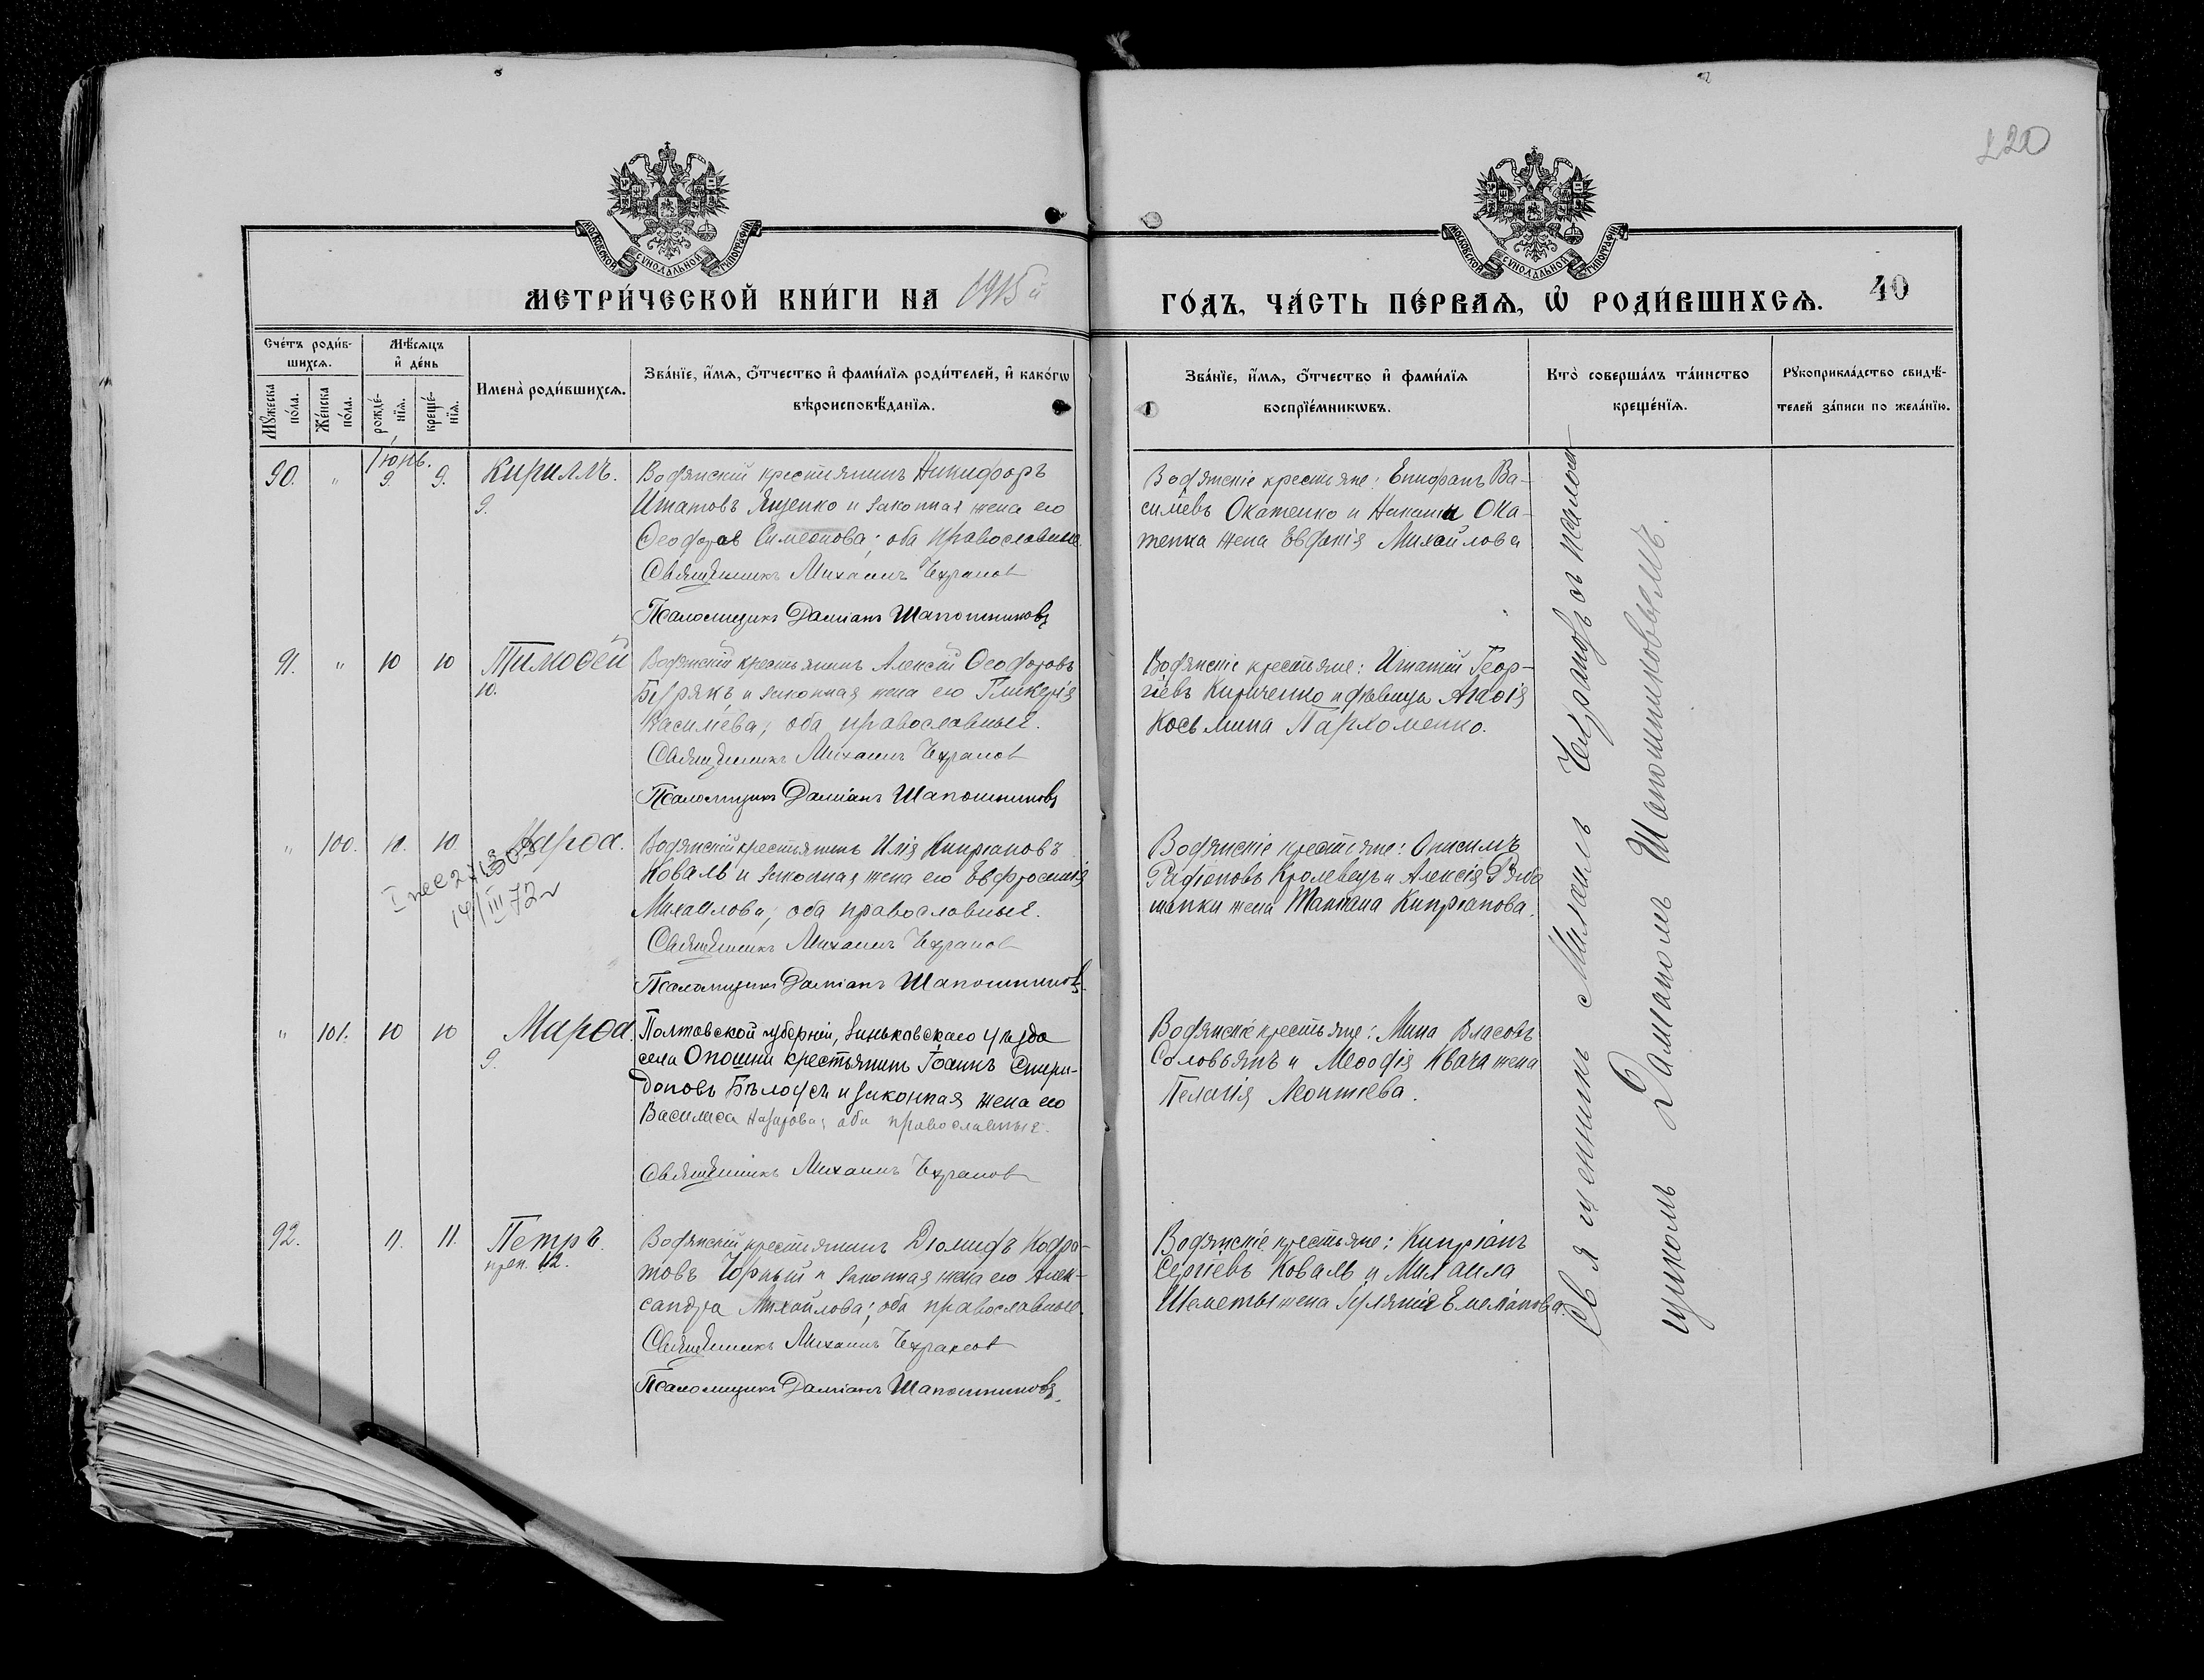 220
МОСКОВСКОЙ СѴНОДАЛЬНОЙ ТИПОГРАФІИ
МОСКОВСКОЙ СѴНОДАЛЬНОЙ ТИПОГРАФІИ
МЕТРИ́ЧЕСКОЙ КНИ́ГИ НА 1915й
ГО́ДЪ, ЧА́СТЬ ПЕ́РВАѦ, Ѡ҆ РОДИ́ВШИХСѦ.
40
Сче́тъ роди́в-
шихсѧ.
Мꙋ́жеска по́ла.
Же́нска по́ла.
Мѣ́сѧцъ
и҆ де́нь
рожде́-
нїѧ.
креще́-
нїѧ.
Имена̀ роди́вшихсѧ.
Зва́нїе, и҆́мѧ, ѻ҆́тчество и҆ фами́лїѧ роди́телей, и҆ како́гѡ
вѣроисповѣ́данїѧ.
Зва́нїе, и҆́мѧ, ѻ҆́тчество и҆ фами́лїѧ
воспрїе́мникѡвъ.
Кто̀ соверша́лъ та́инство
креще́нїѧ.
Рꙋкоприкла́дство свидѣ́-
телей за́писи по жела́нїю.
90. " Іюнь. 9. 9. Кириллъ.
9.
Водянскій крестьянинъ Никифоръ
Игнатовъ Яценко и законная жена его
Ѳеодора Симеонова; оба православные.
Священникъ Михаилъ
Псаломщикъ Даміанъ Шапошниковъ
Водянскіе крестьяне: Епифанъ Ва-
силіевъ Окатенко и Ока-
тенка жена Евдокія Михайлова
91. " 10 10 Тимоѳей
10.
Водянскій крестьянинъ Алексій Ѳеодоровъ
Бурякъ и законная жена его Гликерія
Василіева; оба православные.
Священникъ Михаилъ
Псаломщикъ Даміанъ Шапошниковъ
Водянскіе крестьяне: Игнатій Геор-
гіевъ Кириченко и дѣвица Агаѳія
Косьмина Пархоменко.
" 100. 10. 10 Марѳа.
14/III 72
Водянскій крестьянинъ Илія Кипріановъ
Коваль и законная жена его Евфросинія
Михаилова; оба православные.
Священникъ Михаилъ
Псаломщикъ Даміанъ Шапошниковъ
Водянскіе крестьяне: Онисимъ
Родіоновъ Кролевецъ и Алексія
жена Татіана Кипріанова.
" 101. 10 10 Марѳа.
9.
Полтавской губерніи, Зиньковскаго уѣзда
села Опошни крестьянинъ Іоаннъ Спири-
доновъ Бѣлоусъ и законная жена его
Василиса Назарова; оба православные.
Священникъ Михаилъ
Водянскіе крестьяне: Мина Власовъ
Соловьянъ и Меѳодія Квача жена
Пелагія Леонтіева.
92. 11. 11. Петръ.
12.
Водянскій крестьянинъ Діомидъ Кодра-
товъ Чорный и законная жена его Алек-
сандра Михайлова; оба православные.
Священникъ Михаилъ
Псаломщикъ Даміанъ Шапошниковъ.
Водянскіе крестьяне: Кипріанъ
Сергіевъ Коваль и Михаила
Шеметы жена Іуліанія Емеліанова.
Священникъ Михаилъ съ псалом
щикомъ Даміаномъ Шапошниковымъ.